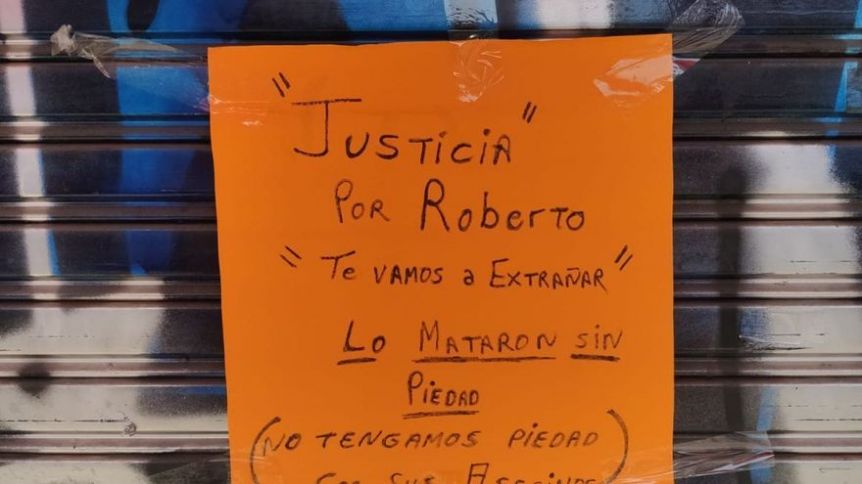 "JUSTICIA"
POR ROBERTO
"TE VAMOS a EXTRAÑAR"
LO MATARON SIN
PIEDAD
(NO TENGAMOS PIEDAD
CON SUS ASESINOS)